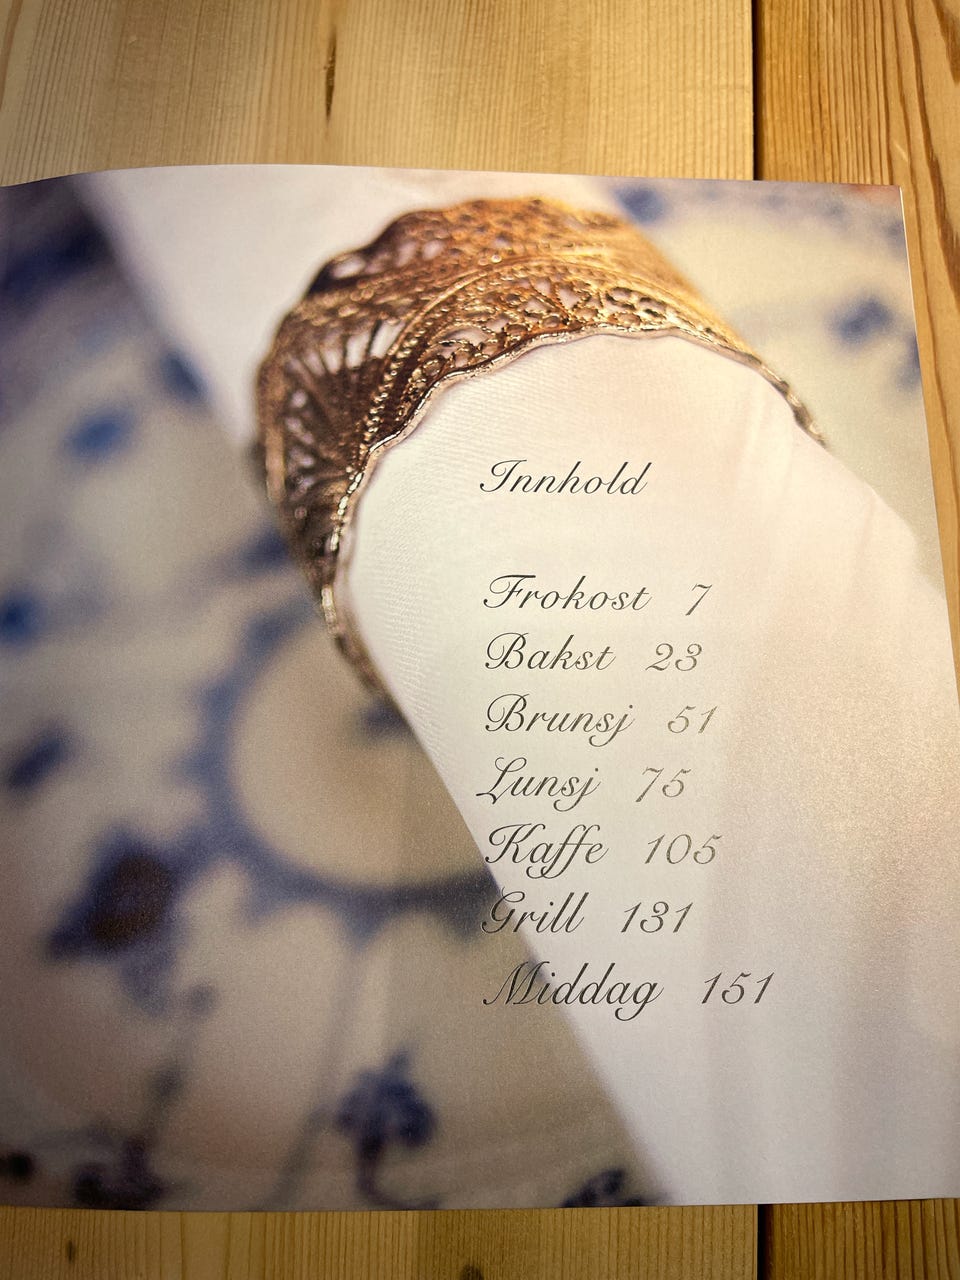 Innhold
Frokost 7
Bakst 23
Brunsj 51
Lunsj 75
Kaffe 105
Grill 131
Middag 151